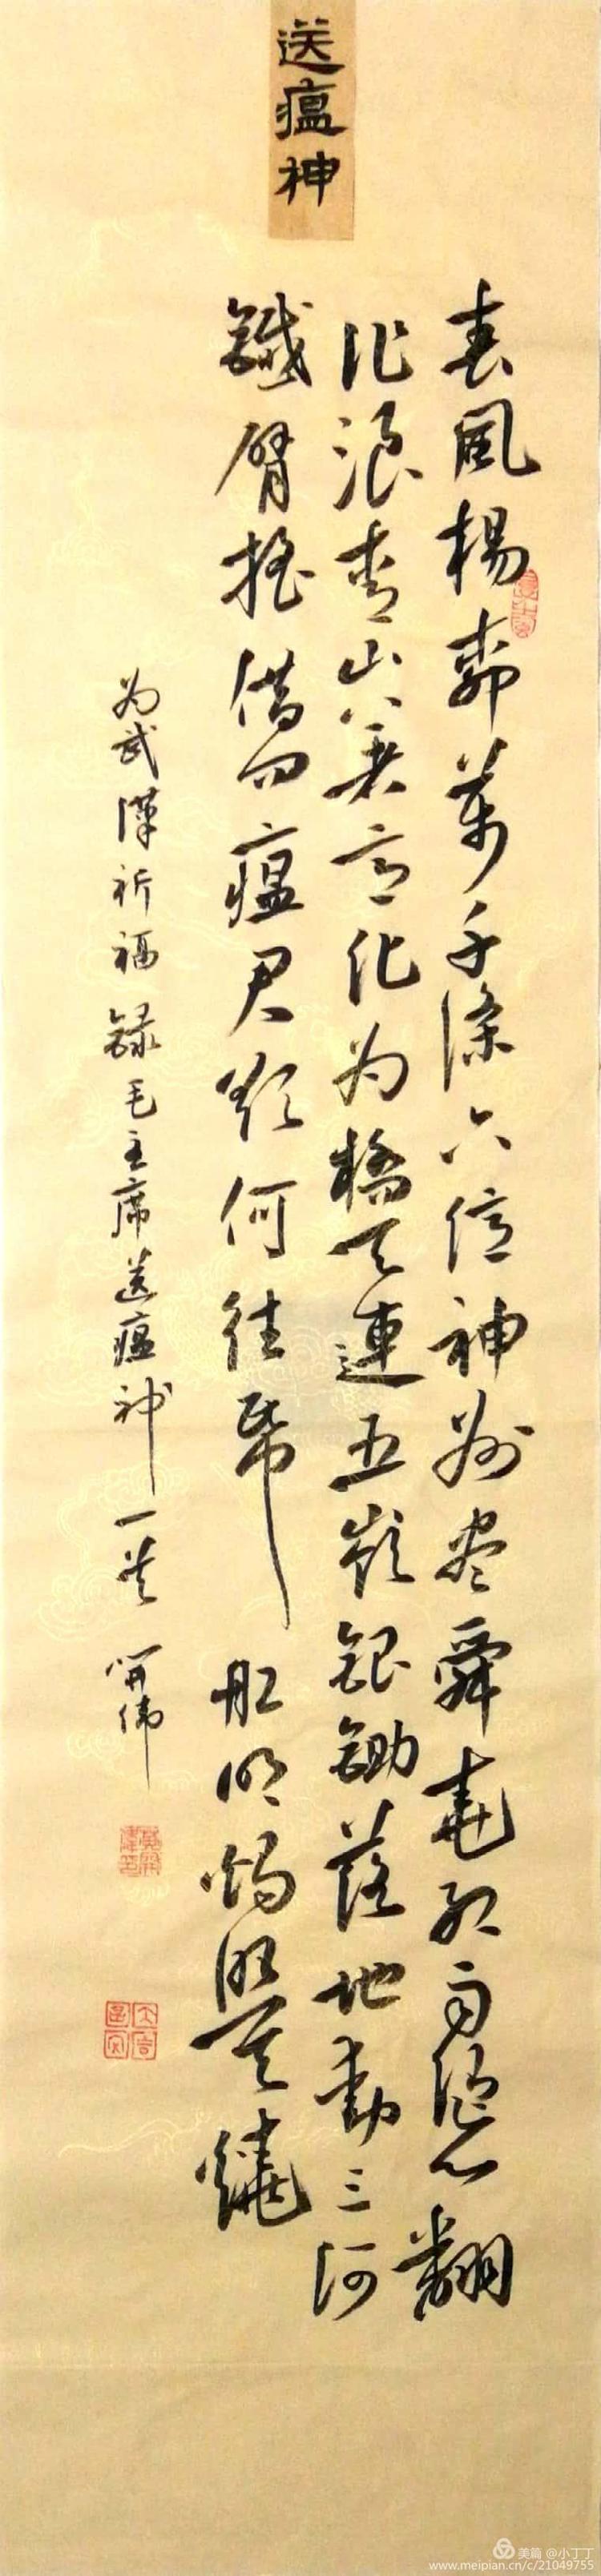 送瘟神
春風楊柳萬千條六億神州尽舜堯紅雨随心翻
作浪青山着意化为橋天連五嶺銀鋤落地動三河
鐵臂摇借问瘟君欲何往帋船明燭照天燒
为武漢祈福錄毛主席送瘟神一首 開偉
美篇 @小丁丁
www.meipian.cn/c/21049755